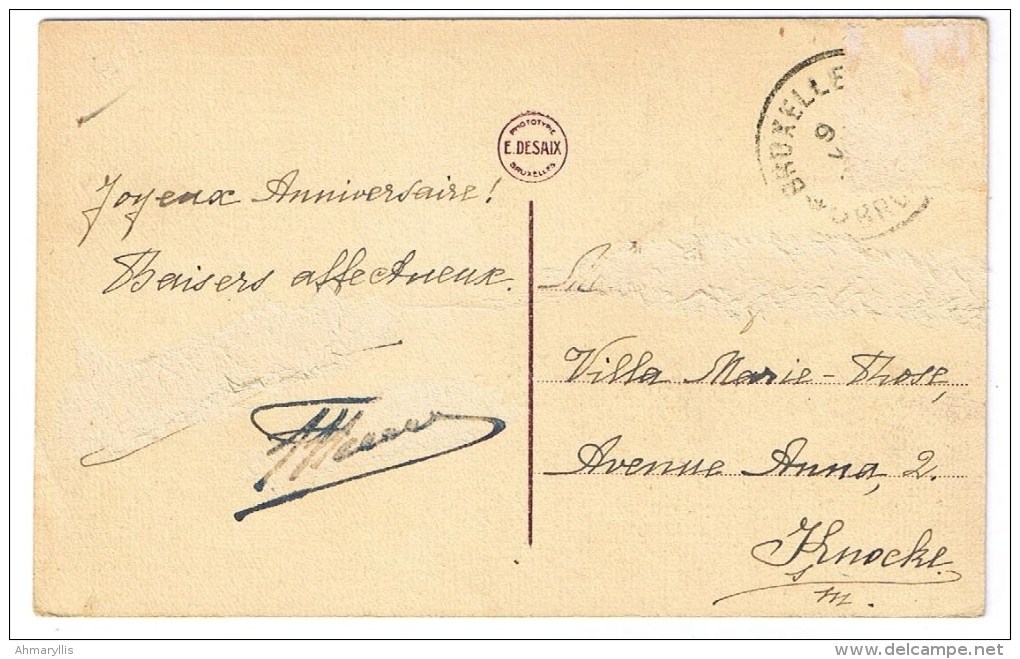 PHOTOTYPIE
E. DESAIX
BRUXELLES
BRUXELLE
9
Joyeux Anniversaire!
Baisers affectueux.
Villa Marie-Rose,
Avenue Anna, 2.
Knocke
s/m.
Ahmaryllis
www.delcampe.net